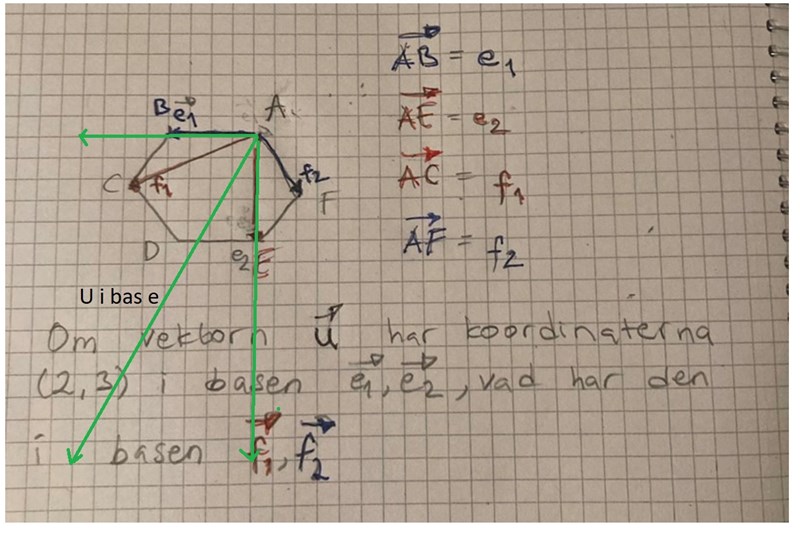 AB = e1
B e1 A
AE = e2
C f1 f2 F
AC = f1
D e2 E
AF = f2
U i bas e
Om vektorn u har koordinaterna
(2,3) i basen e1, e2, vad har den
i basen f1, f2